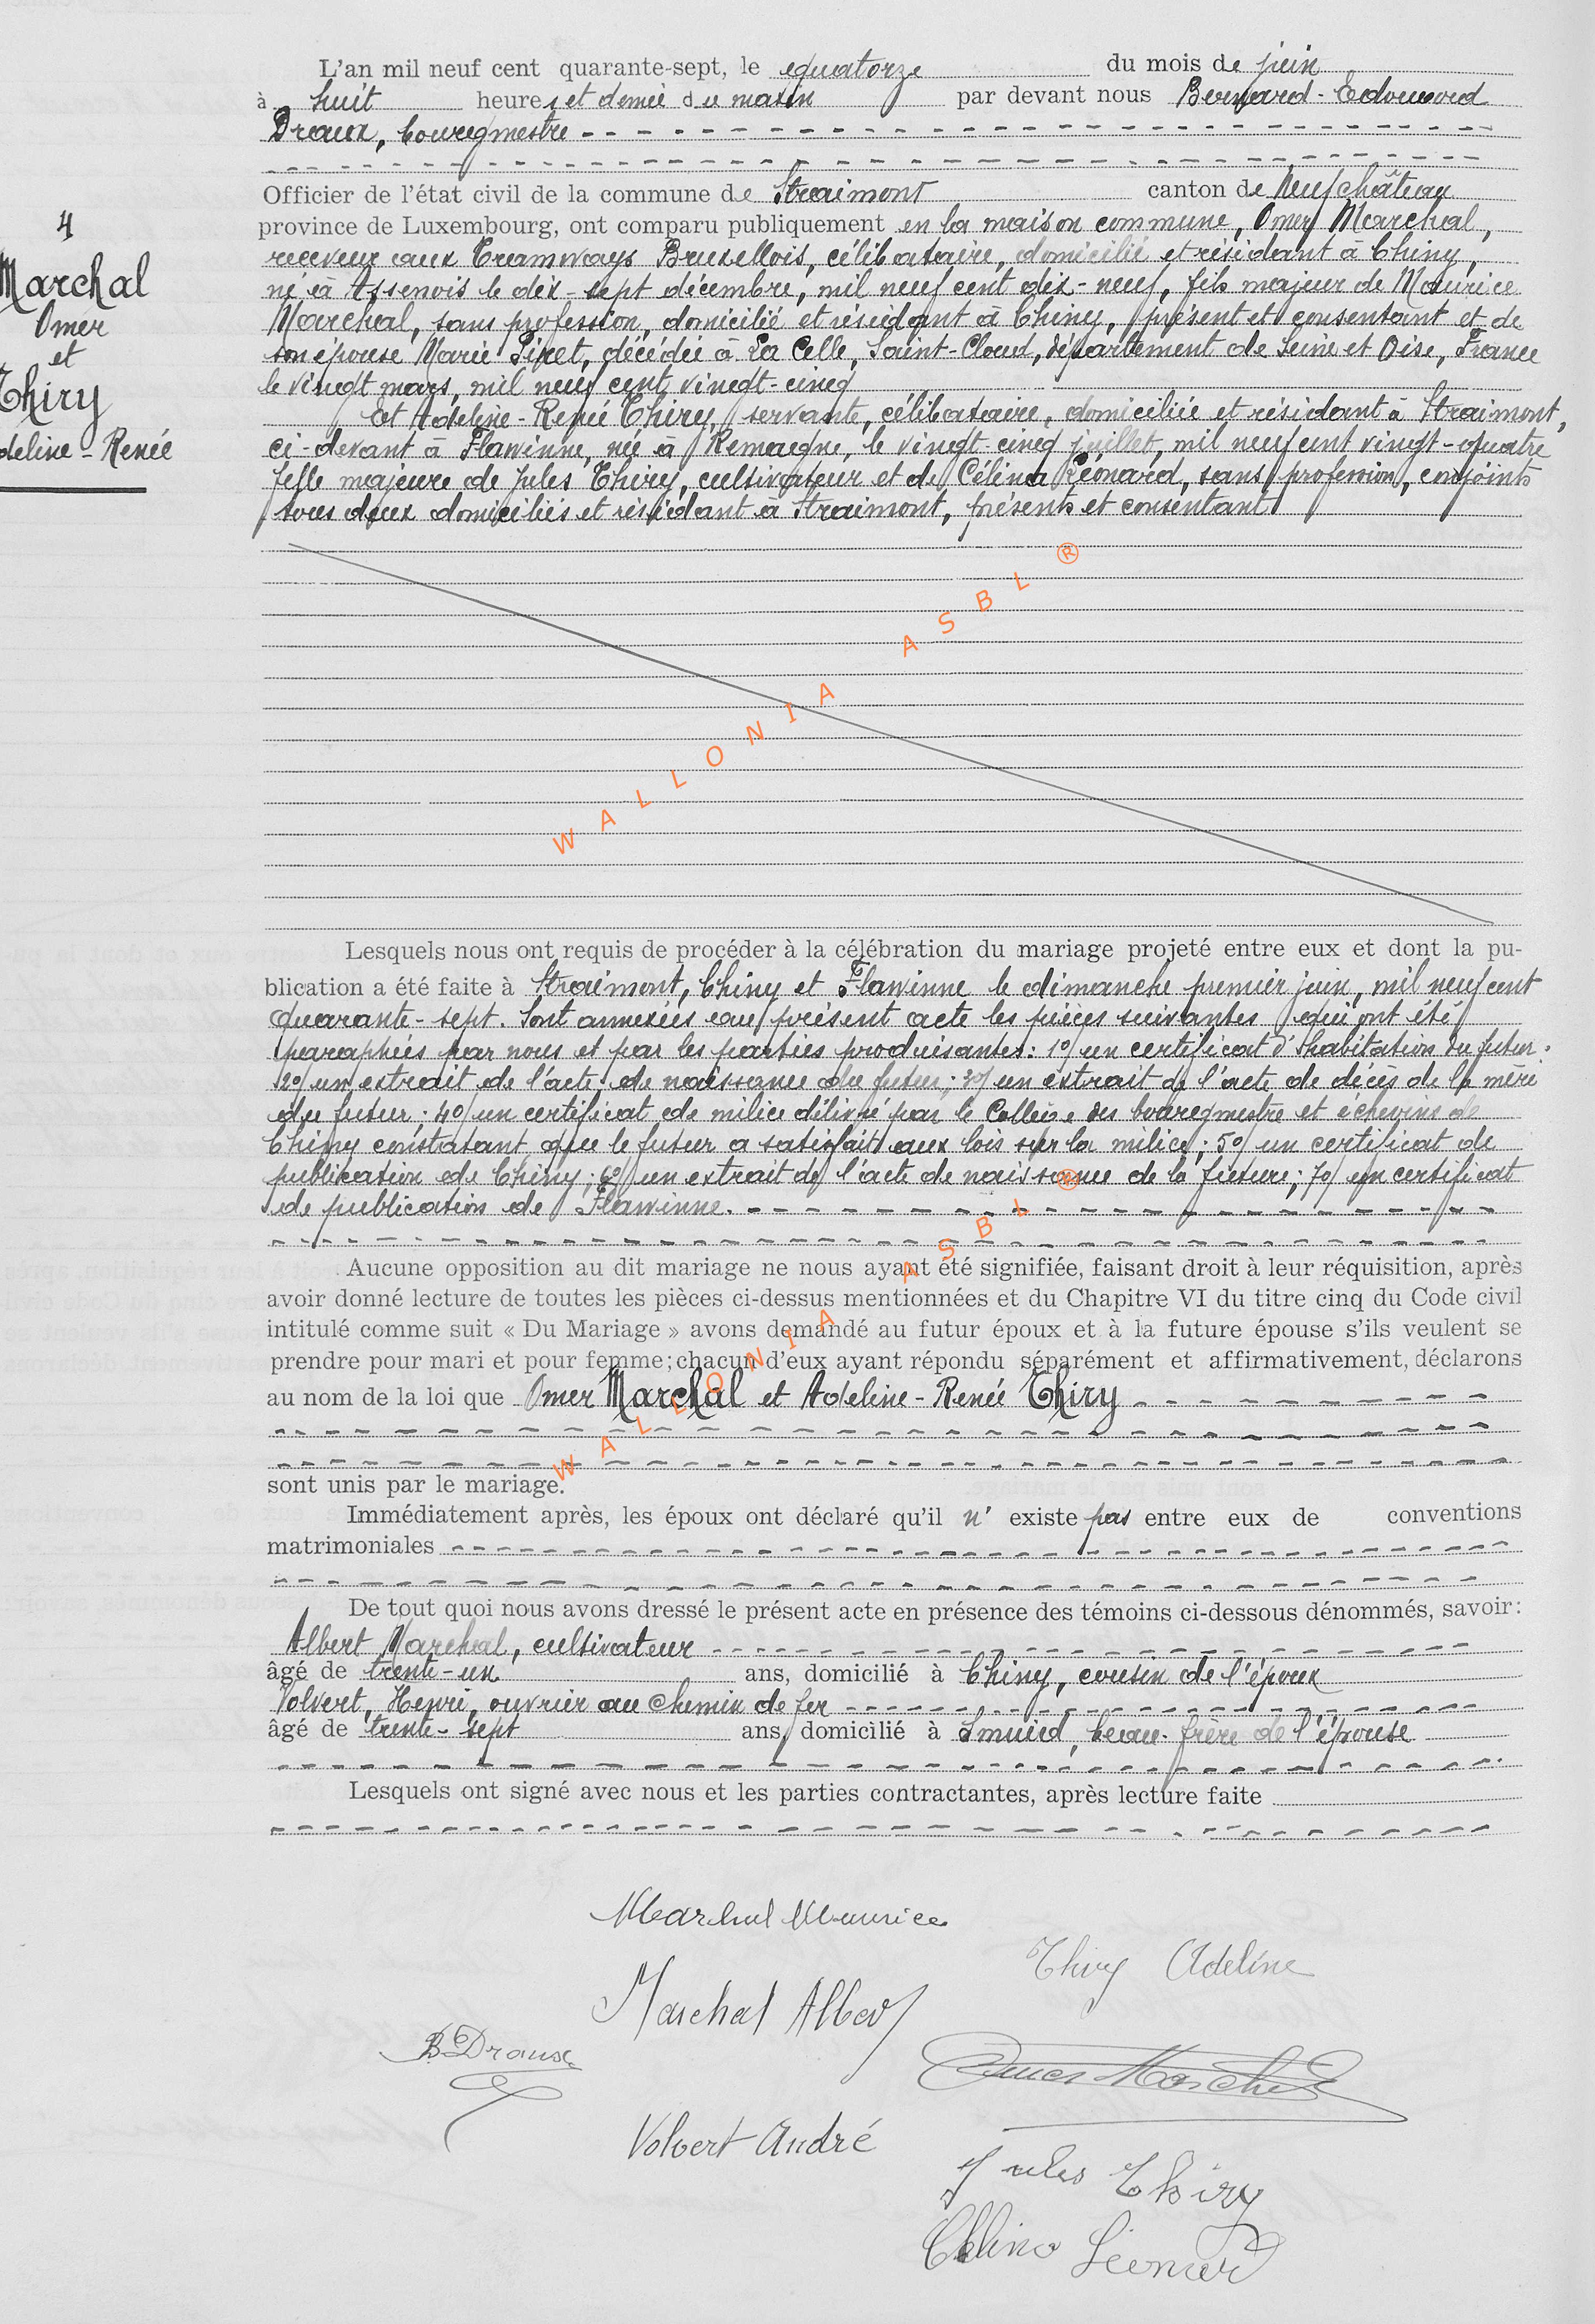 L'an mil neuf cent quarante-sept, le quatorze du mois de juin
à huit heures et demie du matin par devant nous Bernard-Edouard
Draux, bourgmestre
Officier de l'état civil de la commune de Straimont canton de Neufchâteau
province de Luxembourg, ont comparu publiquement en la maison commune, Omer Marchal,
receveur aux Tramways Bruxellois, célibataire, domicilié et résidant à Chiny,
né à Assenois le dix-sept décembre, mil neuf cent dix-neuf, fils majeur de Maurice
Marchal, sans profession, domicilié et résidant à Chiny, présent et consentant et de
son épouse Marie, décédée à La Celle, Saint-Cloud, département de Seine et Oise, France
le vingt mars, mil neuf cent vingt-cinq
Et Adeline-Renée Thiry, servante, célibataire, domiciliée et résidant à Straimont,
ci-devant à Flawinne, née à Remagne, le vingt-cinq juillet, mil neuf cent vingt-quatre
fille majeure de Jules Thiry, cultivateur et de Célina Léonard, sans profession, conjoints
tous deux domiciliés et résidant à Straimont, présents et consentant
4
Marchal
Omer
et
Thiry
deline-Renée
WALLONIA ASBL ®
Lesquels nous ont requis de procéder à la célébration du mariage projeté entre eux et dont la pu-
blication a été faite à Straimont, Chiny et Flawinne le dimanche premier juin, mil neuf cent
quarante-sept. Sont annexées au présent acte les pièces suivantes qui ont été
paraphées par nous et par les parties produisantes: 1º un certificat d'habitation du futur:
2º un extrait de l'acte de naissance du futur; 3º un extrait de l'acte de décès de la mère
du futur; 4º un certificat de milice délivré par le Collège des bourgmestre et échevins de
Chiny constatant que le futur a satisfait aux lois sur la milice; 5º un certificat de
publication de Chiny; 6º un extrait de l'acte de naissance de la future; 7º un certificat
de publication de Flawinne.
Aucune opposition au dit mariage ne nous ayant été signifiée, faisant droit à leur réquisition, après
avoir donné lecture de toutes les pièces ci-dessus mentionnées et du Chapitre VI du titre cinq du Code civil
intitulé comme suit « Du Mariage » avons demandé au futur époux et à la future épouse s'ils veulent se
prendre pour mari et pour femme; chacun d'eux ayant répondu séparément et affirmativement, déclarons
au nom de la loi que Omer Marchal et Adeline-Renée Thiry
WALLONIA ASBL ®
sont unis par le mariage.
Immédiatement après, les époux ont déclaré qu'il n' existe pas entre eux de conventions
matrimoniales
De tout quoi nous avons dressé le présent acte en présence des témoins ci-dessous dénommés, savoir:
Albert Marchal, cultivateur
âgé de trente-un ans, domicilié à Chiny, cousin de l'époux
Volvert, Henri, ouvrier au chemin de fer
âgé de trente-sept ans, domicilié à Smuid, beau-frère de l'épouse
Lesquels ont signé avec nous et les parties contractantes, après lecture faite
Marchal Maurice
Thiry Adeline
Marchal Albert
B Draux
Omer Marchal
Volvert André
Jules Thiry
Célina Léonard